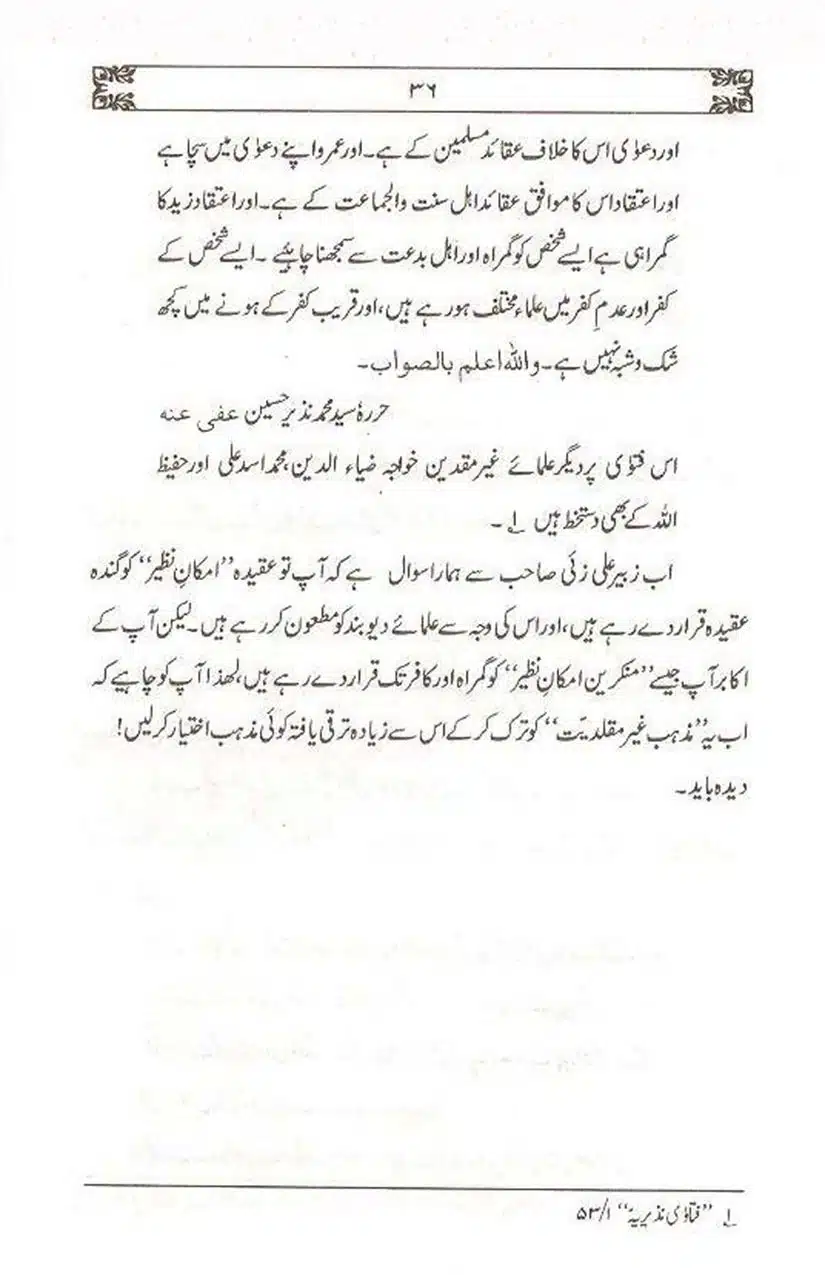 ۳۶
اور دعوٰی اس کا خلاف عقائد مسلمین کے ہے۔ اور عمرو اپنے دعوٰی میں سچا ہے
اور اعتقاد اس کا موافق عقائد اھل سنت والجماعت کے ہے۔ اور اعتقاد زید کا
گمراہی ہے ایسے شخص کو گمراہ اور اھل بدعت سے سمجھنا چاہئیے۔ ایسے شخص کے
کفر اور عدمِ کفر میں علماء مختلف ہو رہے ہیں، اور قریب کفر کے ہونے میں کچھ
شک و شبہ نہیں ہے۔ واللہ اعلم بالصواب۔
حررہٗ سید محمد نذیر حسین عفی عنہ
اس فتوٰی پر دیگر علمائے غیر مقدین خواجہ ضیاء الدین، محمد اسد علی اور حفیظ
اللہ کے بھی دستخط ہیں ۱۔
اب زبیر علی زئی صاحب سے ہمارا سوال ہے کہ آپ تو عقیدہ ”امکانِ نظیر“ کو گندہ
عقیدہ قرار دے رہے ہیں، اور اس کی وجہ سے علمائے دیوبند کو مطعون کر رہے ہیں۔ لیکن آپ کے
اکابر آپ جیسے ”منکرین امکانِ نظیر“ کو گمراہ اور کافر تک قرار دے رہے ہیں، لھذا آپ کو چاہیے کہ
اب یہ ”مذہب غیر مقلدیّت“ کو ترک کر کے اس سے زیادہ ترقی یافتہ کوئی مذہب اختیار کر لیں!
دیدہ باید۔
۱ ”فتاوٰی نذیریہ“ ۵۳/۱